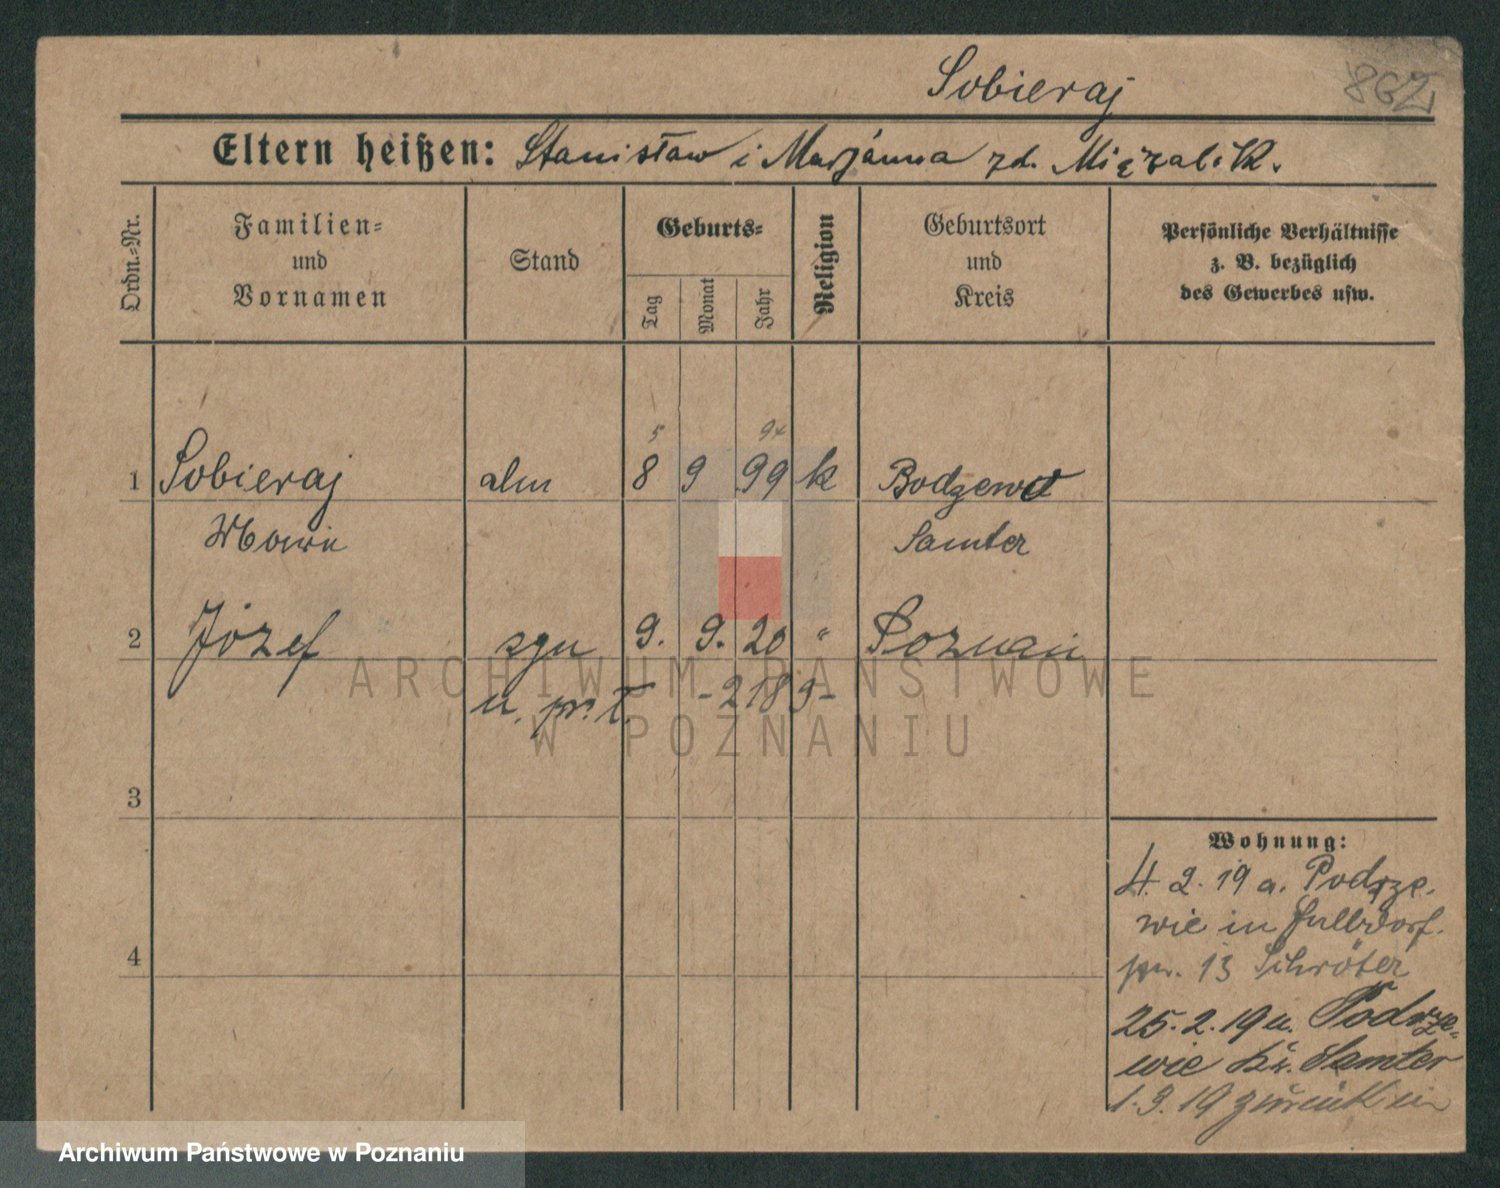 Sobieraj
862
Eltern heißen: Stanisław i Marjánna zd. Migzalik.
Ordn.-Nr.
Familien-
und
Vornamen
Stand
Geburts-
Tag
Monat
Jahr
Religion
Geburtsort
und
Kreis
Persönliche Verhältnisse
z. B. bezüglich
des Gewerbes usw.
5 94
1 Sobieraj 8 9 99 k
Samter
2 Józef syn 9. 9. 20 " Poznań
-2189-
3
4
Wohnung:
4. 2. 19 a. Podrze-
wie in
13 Schröter
25. 2. 19 u. Podrze-
wie Kr. Samter
1. 3. 19 zurück in
ARCHIWUM PAŃSTWOWE
W POZNANIU
Archiwum Państwowe w Poznaniu